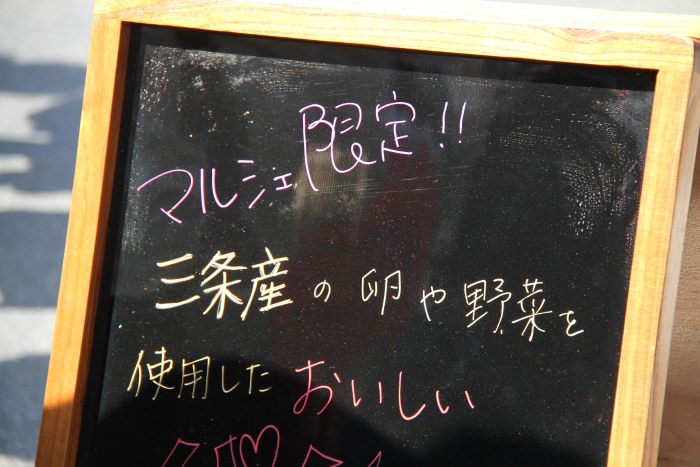 マルシェ限定!!
三条産の卵や野菜を
使用したおいしい